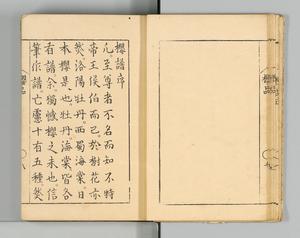 櫻譜序
凡至尊者不名而知不特
帝王侯伯而已於樹花亦
然洛陽牡丹西蜀海棠日
本櫻是也牡丹海棠皆各
有譜余獨憾櫻之未也信
筆作譜亡慮十有五種然